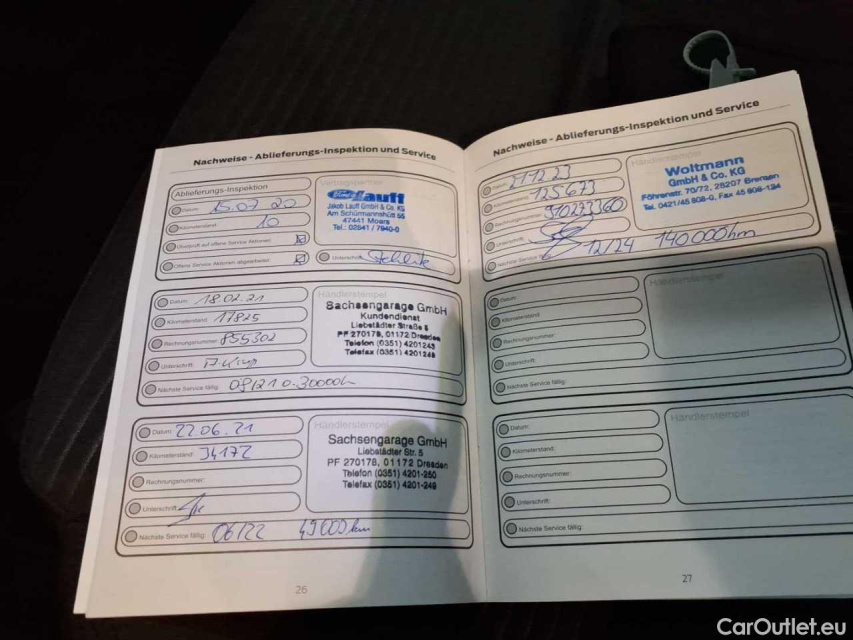 Nachweise - Ablieferungs-Inspektion und Service
Ablieferungs-Inspektion
Datum: 15.07.20
Kilometerstand: 10
Offene Service Aktionen
Unterschrift:
Ford Lauff
Jakob Lauff GmbH & Co. KG
Am Schürmannshütt 55
47441 Moers
Tel.: 02841 / 7940-0
Datum: 18.02.21
Kilometerstand: 17825
Rechnungsnummer: 855302
Unterschrift:
Nächste Service fällig:
Händlerstempel
Sachsengarage GmbH
Kundendienst
Liebstädter Straße 5
PF 270178, 01172 Dresden
Telefon (0351) 4201243
Telefax (0351) 4201249
Datum: 22.06.21
Kilometerstand: 34172
Rechnungsnummer:
Unterschrift:
Nächste Service fällig: 06/22 49000 km
Händlerstempel
Sachsengarage GmbH
Liebstädter Str. 5
PF 270178, 01172 Dresden
Telefon (0351) 4201-250
Telefax (0351) 4201-249
26
Nachweise - Ablieferungs-Inspektion und Service
Datum: 211223
Kilometerstand: 125673
Rechnungsnummer: 310273360
Unterschrift:
Nächste Service 12/24 140000km
Händlerstempel
Woltmann
GmbH & Co. KG
Föhrenstr. 70/72, 28207 Bremen
Tel. 0421/45 808-0, Fax 45 808-134
Datum:
Kilometerstand:
Rechnungsnummer:
Unterschrift:
Nächste Service fällig:
Händlerstempel
Datum:
Kilometerstand:
Rechnungsnummer:
Unterschrift:
Nächste Service fällig:
Händlerstempel
27
CarOutlet.eu